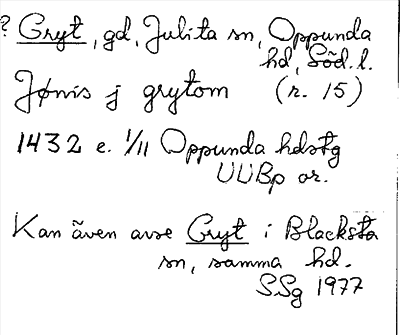 ? Gryt, gd, Julita sn, Oppunda
hd, Söd. l.
Jønis j grytom (r. 15)
1432 e. 1/11 Oppunda hdstg
UUBp or.
Kan även avse Gryt i Blacksta
sn, samma hd.
SSg 1977